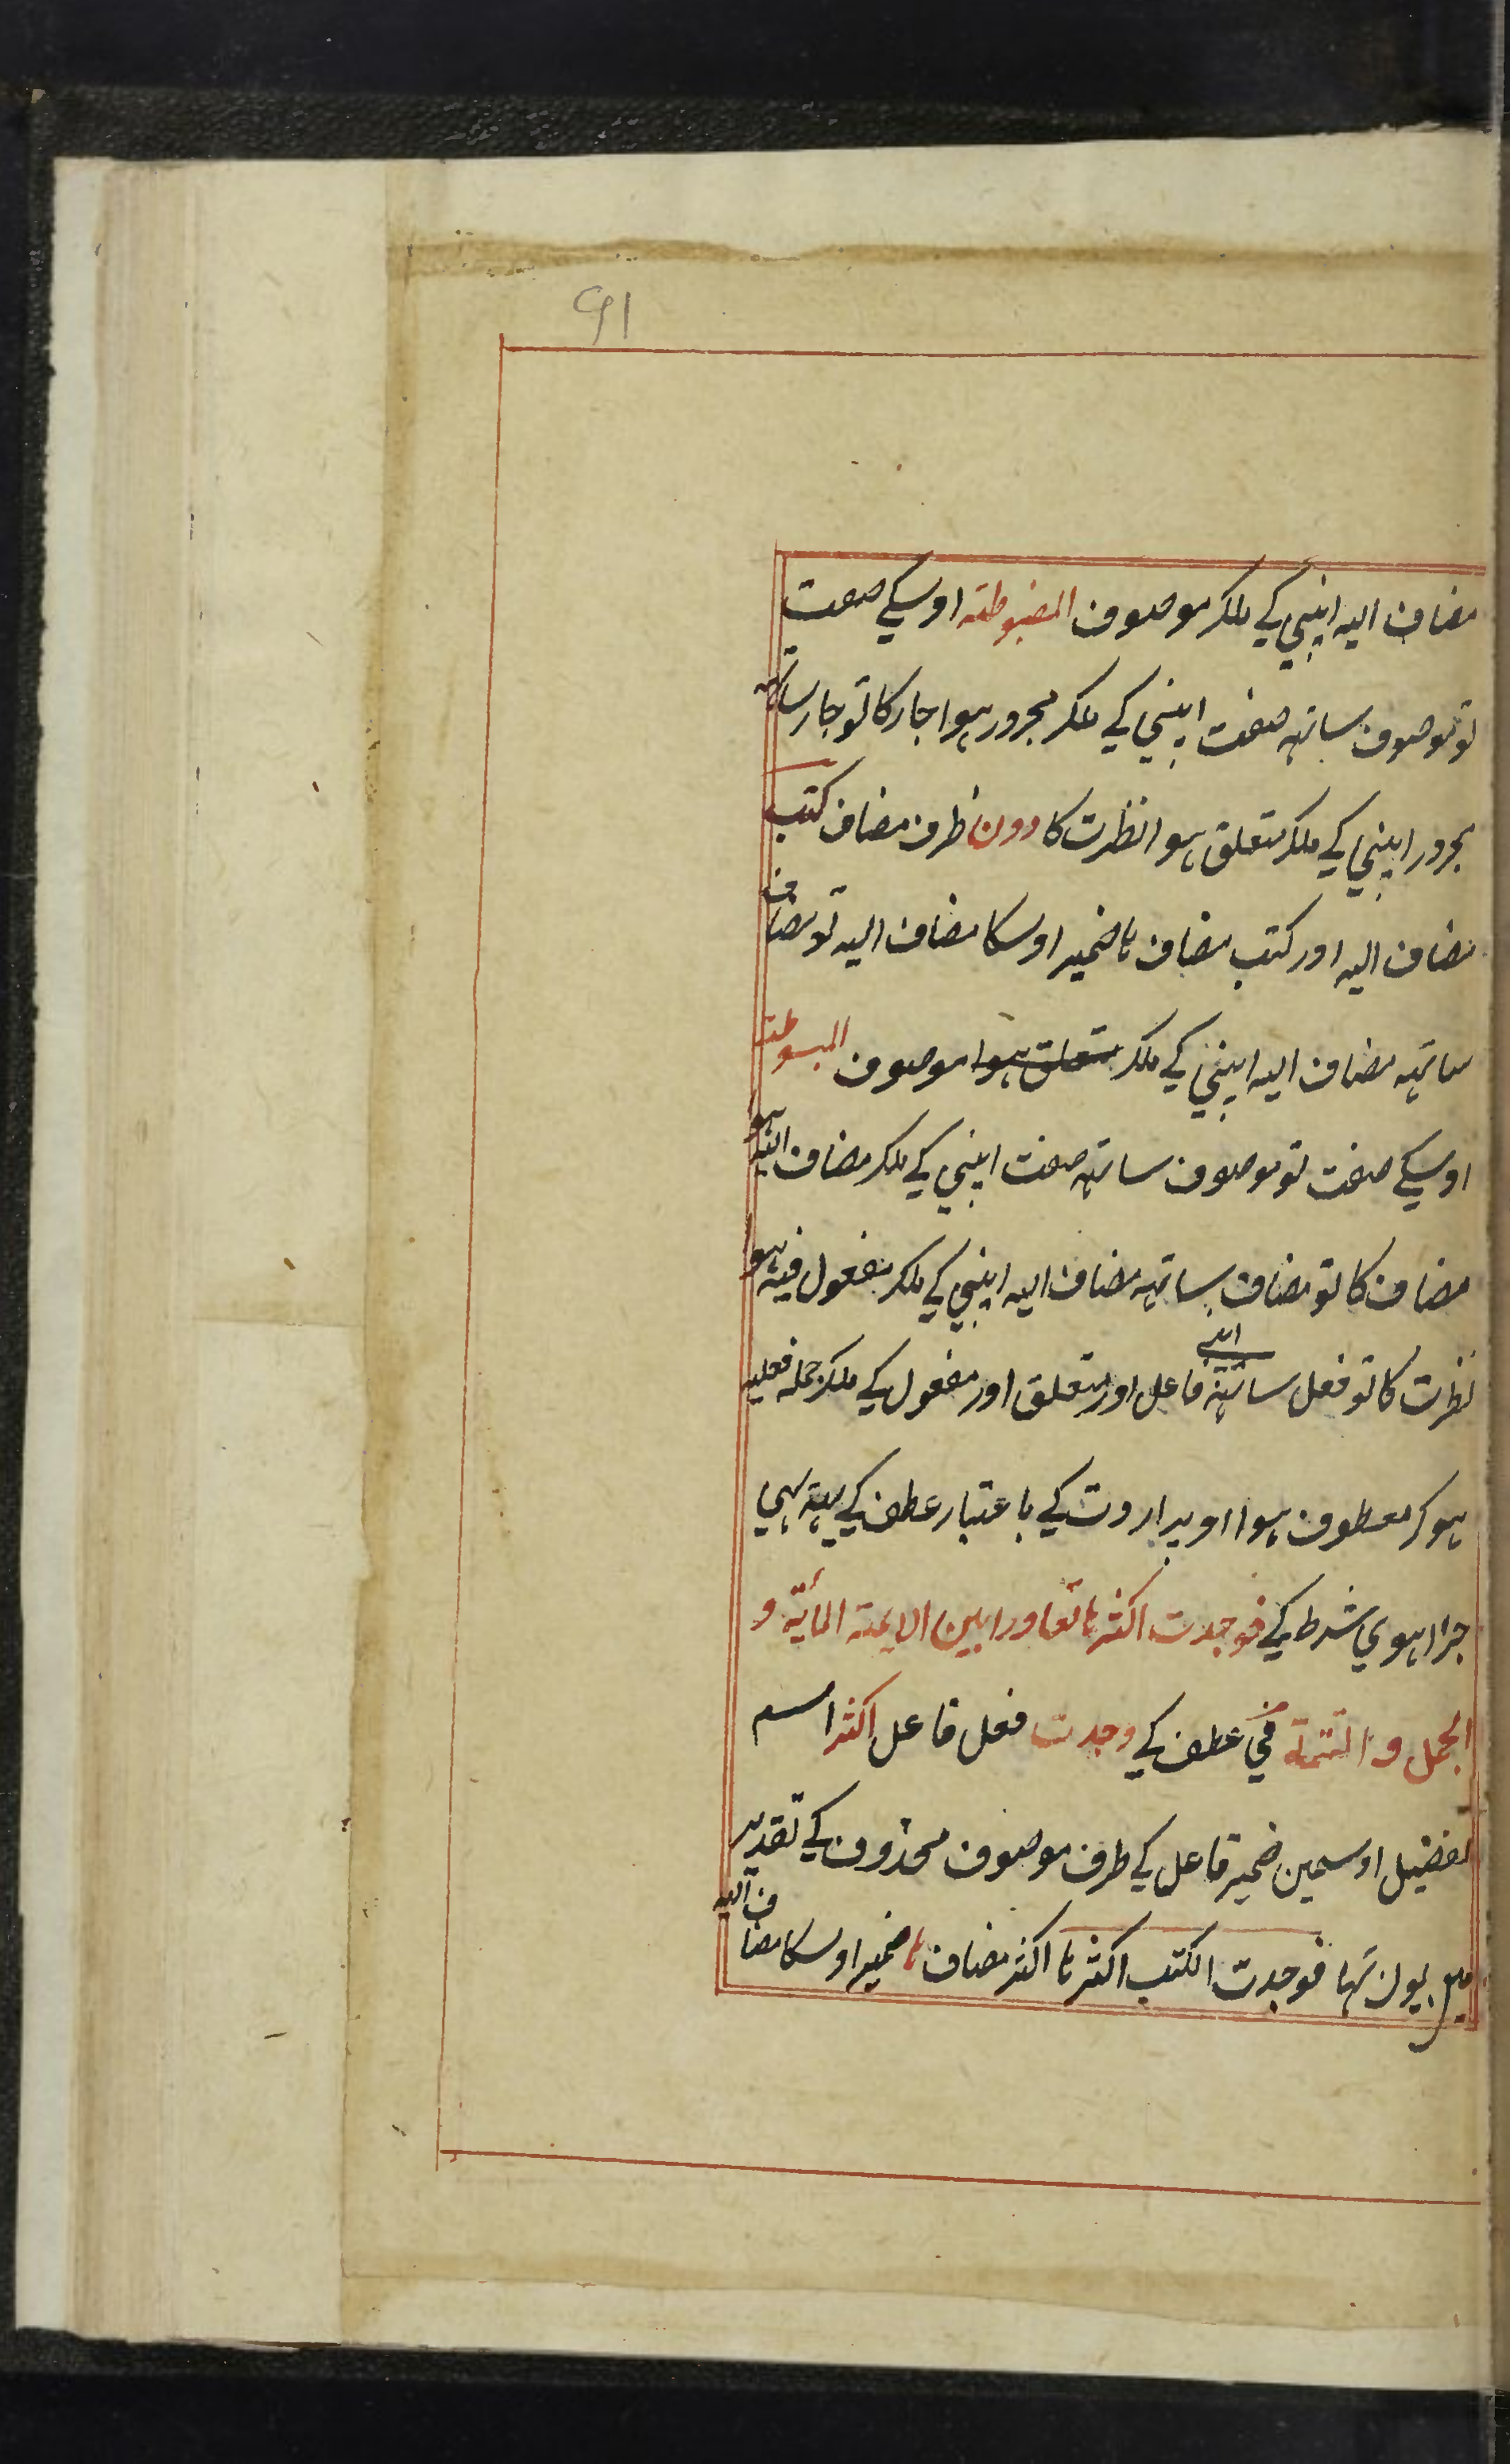 91
مضاف الیه اپنی کے ملکر موصوف المضبوطة اوسکے صفت
تو موصوف ساتهه صفت اپنی کے ملکر مجرور ہوا جار کا تو جار ساتهه
مجرور اپنی کے ملکر متعلق ہوا نظرت کا دون ظرف مضاف کتب
مضاف الیه اور کتب مضاف ہا ضمیر اوسکا مضاف الیه تو مضاف
ساتهه مضاف الیه اپنی کے ملکر متعلق ہوا موصوف المبسوطة
اوسکے صفت تو موصوف ساتهه صفت اپنی کے ملکر مضاف الیه ہو
مضاف کا تو مضاف ساتهه مضاف الیه اپنی کے ملکر مفعول فیه ہو
نظرت کا تو فعل ساتهه اپنے فاعل اور متعلق اور مفعول کے ملکر جمله فعلیه
ہو کر معطوف ہوا اوپر اردت کے باعتبار عطف کے یهه بهی
جزا ہوی شرط کے فوجدت اکثرها تعاورا بین الایمة المأیة و
الجمل و التتمة فی عطف کے وجدت فعل فاعل اکثر اسم
تفضیل اوسمین ضمیر فاعل کے طرف موصوف محذوف کے تقدیر
یون تها فوجدت الکتب اکثرها اکثر مضاف ها ضمیر اوسکا مضاف الیه